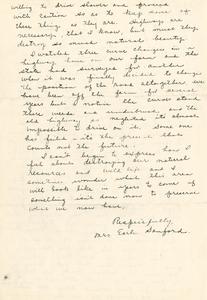 willing to drive slower and proceed
with caution so as to keep some of
these things as they are. Highways are
necessary, that I know, but must they
destroy so much natural beauty.
I watched three curves changed in a
highway here on our farm and the
state had surveyed for
when it was finally decided to change
the position of the road altogether. We
have been off the farm for several
years but I notice the curves stand
there weeds and and the
old highway, so neglected its almost
impossible to drive on it. Some one
has failed - its the present that
counts not the future.
I can't begin to express how I
feel about destroying our natural
resources and wild life and I
sometimes wonder what this area
will look like in years to come if
something isn't done now to preserve
what we now have.
Respectfully
Mrs Earl Sanford.